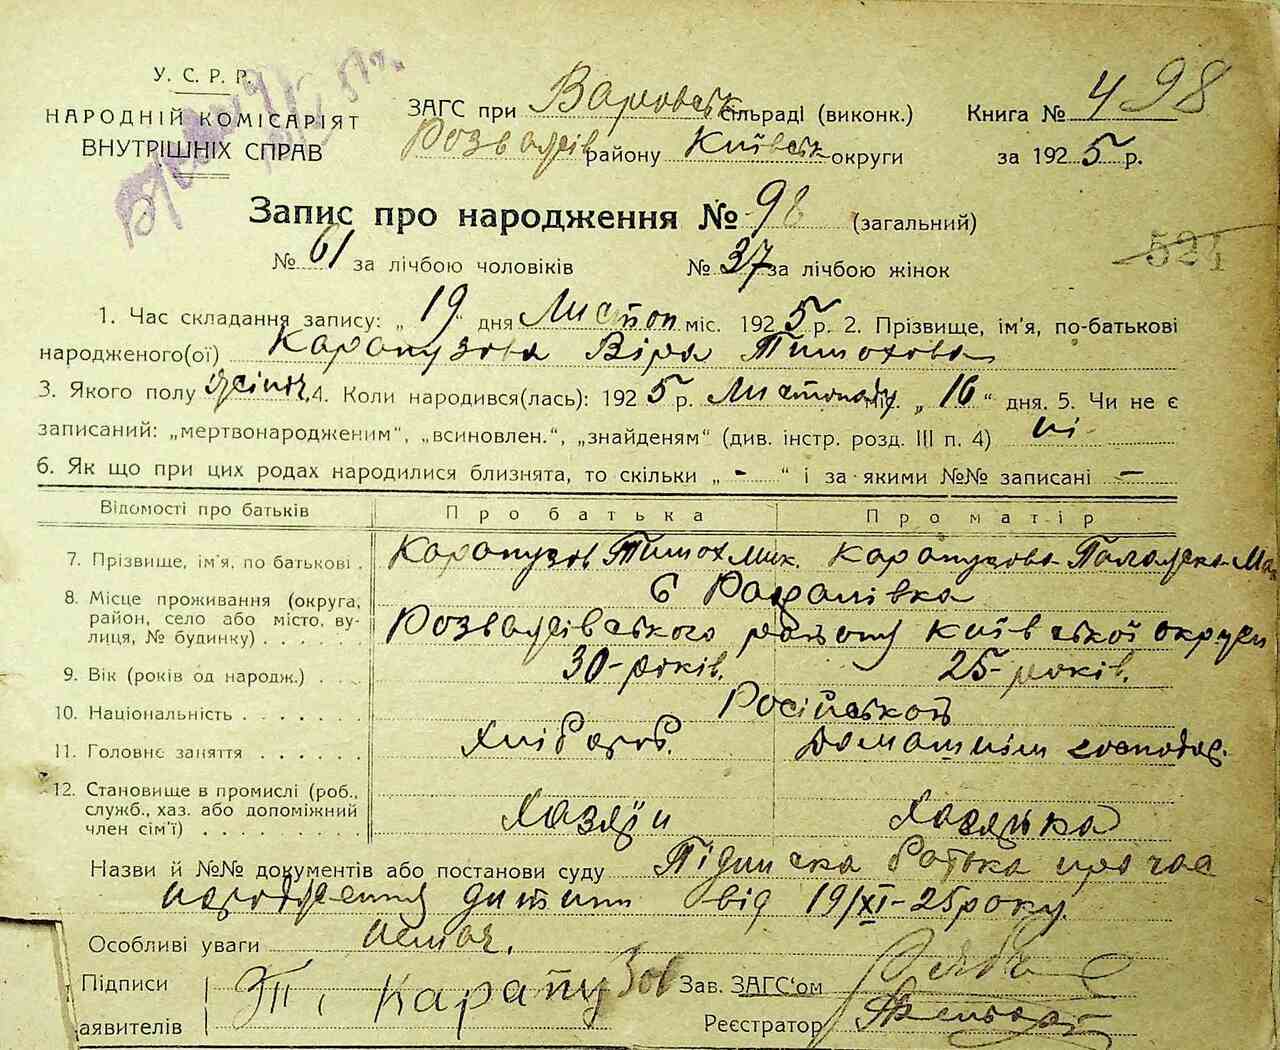 У. С. Р. Р.
НАРОДНІЙ КОМІСАРІЯТ
ВНУТРІШНІХ СПРАВ
ЗАГС при Варовськ сільраді (виконк.) Книга № 4 98
Розважів району Київськ округи за 1925 р.
Запис про народження № 98 (загальний)
524
№ 61 за лічбою чоловіків № 37 за лічбою жінок
1. Час складання запису: „ 19 “ дня Листоп міс. 1925 р. 2. Прізвище, ім'я, по-батькові
народженого(ої) Карапузова Віра Тимохова
3. Якого полу жіноч. 4. Коли народився(лась): 1925 р. Листопаду міс. „ 16 “ дня. 5. Чи не є
записаний: „мертвонародженим“, „всиновлен.“, „знайденям“ (див. інстр. розд. III п. 4) ні
6. Як що при цих родах народилися близнята, то скільки „ - “ і за якими №№ записані -
Відомості про батьків Про батька Про матір
7. Прізвище, ім'я, по батькові . Карапузов Тимох Мик. Карапузова Палажка
8. Місце проживання (округа, район, село або місто, вулиця, № будинку) . . . . . С
Розважівського району Київської округи
9. Вік (років од народж.) . . . 30-років. 25-років.
10. Національність . . . . . . . Російської
11. Головне заняття . . . . . . Хлібороб. Домашнім господар.
12. Становище в промислі (роб., служб., хаз. або допоміжний член сім'ї) . . . . . . . . Хазяїн Хазяйка
Назви й №№ документів або постанови суду Підписка батька про час
народження дитини від 19/XI-25 року.
Особливі уваги немає.
Підписи Т. Карапузов Зав. ЗАГС'ом
аявителів Реєстратор